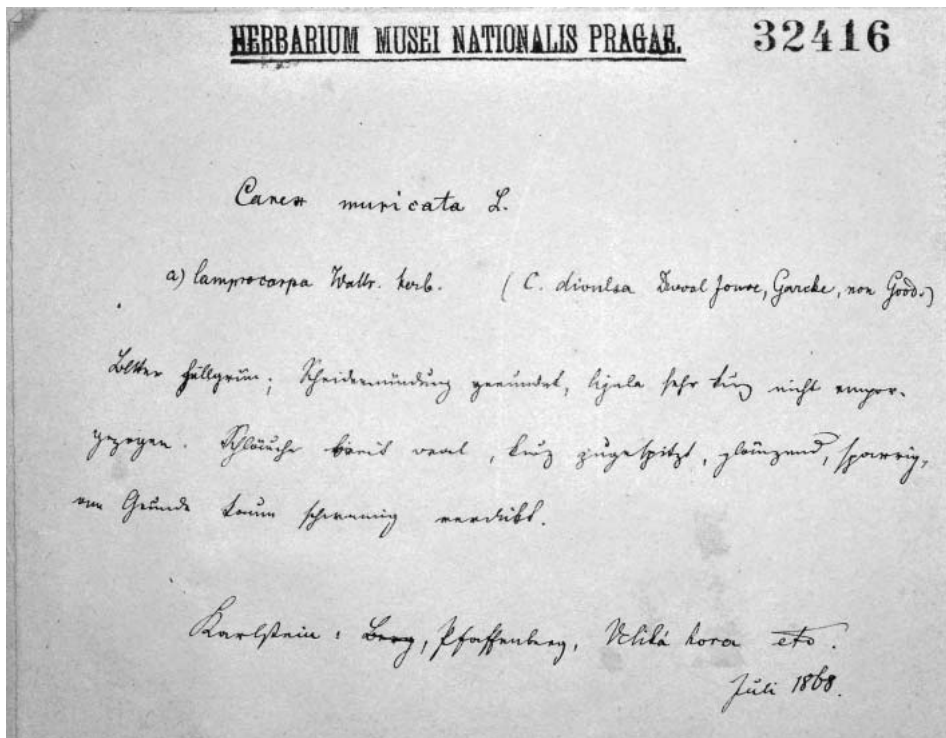 HERBARIUM MUSEI NATIONALIS PRAGAE. 32416
Carex muricata L.
a) lamprocarpa Wallr. herb. (C. divulsa Duval Jouve, Garcke, non Good.)
hellgrün; Scheidenmündung gerundet, ligula sehr kurz nicht empor-
gezogen. Schläuche breit oval, kurz zugespitzt, glänzend, sparrig,
am Grunde kaum schwammig verdickt.
Karlstein: Berg, Pfaffenberg, Veliká hora etc.
Juli 1868.